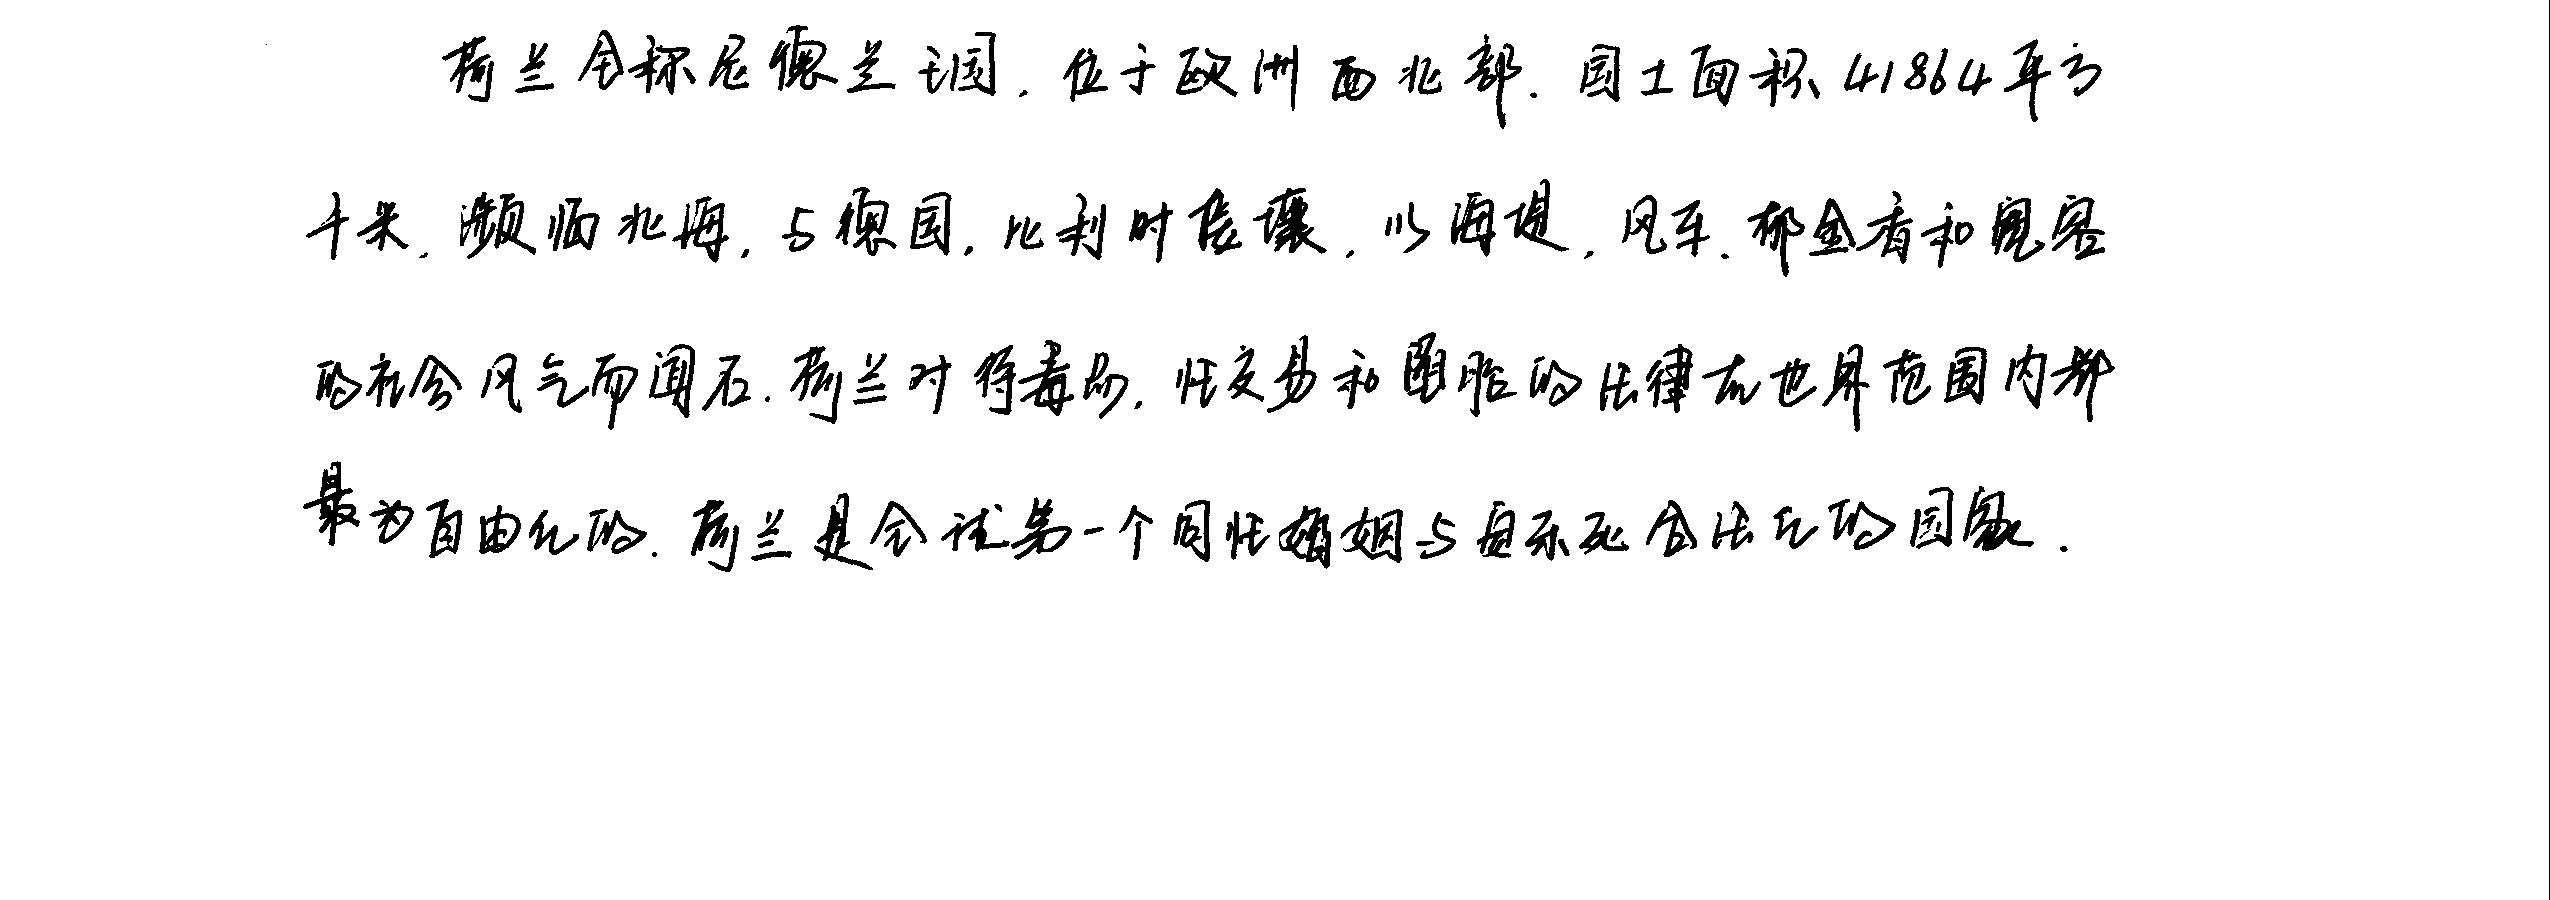 荷兰全称尼德兰王国.位于欧洲西北部.国土面积41864平方
千米.濒临北海.与德国.比利时接壤.以海堤.风车.郁金香和宽容
的社会风气而闻名.荷兰对待毒品.性交易和堕胎的法律在世界范围内都
最为自由化的.荷兰是全球第一个同性婚姻与安乐死合法化的国家.